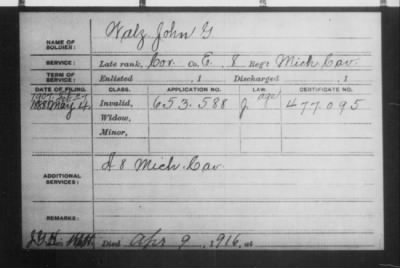 NAME OF SOLDIER: Walz John G
SERVICE: Late rank, Cor. Co. E, 8 Reg't Mich Cav.
TERM OF SERVICE: Enlisted , 1 Discharged , 1
DATE OF FILING. CLASS. APPLICATION NO. LAW. CERTIFICATE NO.
1907 Feb 27 age
1888 May 4. Invalid, 653.588 J 477.095
Widow,
Minor,
ADDITIONAL SERVICES: H 8 Mich Cav.
REMARKS:
Died Apr 9, 1916, at